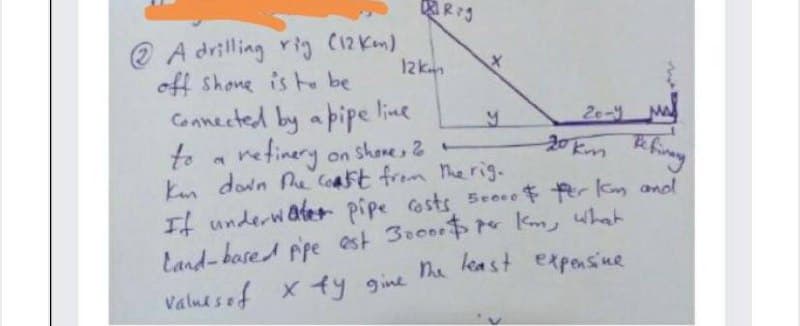 Rig
② A drilling rig (12 Km)
12 Km
x
off shore is to be
Connected by a pipe line
y
20-y
to a refinery on shore, 2
20 Km
Refinery
Km down the coast from the rig.
If underwater pipe costs 50000 $ per Km and
Land-based pipe cost 30000 $ per Km, what
values of x & y give the least expensive